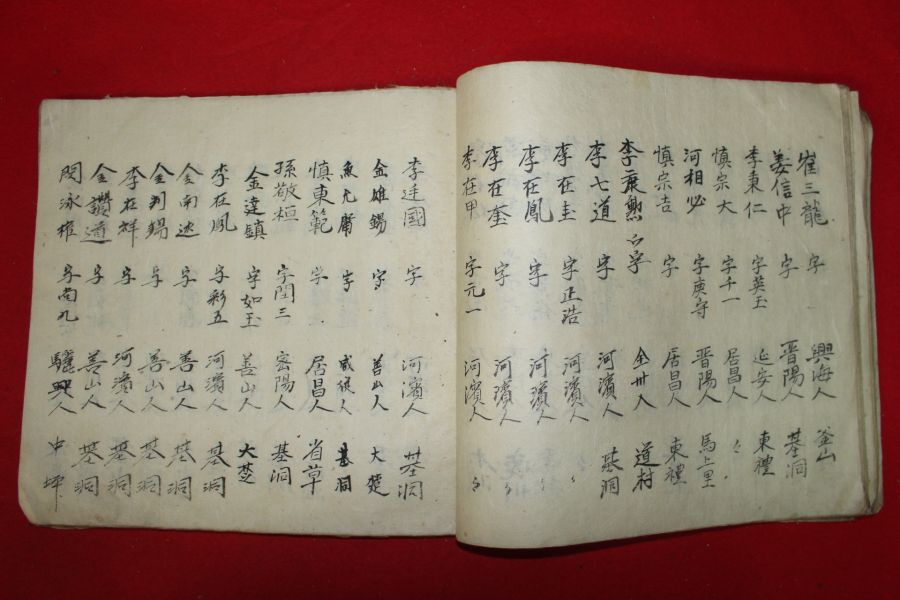 崔三龍 字 興海人 釜山
姜信中 字 晋陽人 基洞
李東仁 字英玉 延安人 東禮
愼宗大 字千一 居昌人 〃
河相必 字庚守 晋陽人 馬上里
愼宗吉 字 居昌人 東禮
李康勲 字 全州人 道村
李七道 字 河濱人 基洞
李在圭 字正浩 河濱人 〃
李在鳳 字 河濱人 〃
李在奎 字 河濱人 〃
李在甲 字元一 河濱人 〃
李廷國 字 河濱人 基洞
金雄錫 字 善山人 大楚
魚允庸 字 咸從人 基洞
愼東範 字 居昌人 省草
孫敬桓 字閏三 密陽人 基洞
金達鎭 字如玉 善山人 大楚
李在鳳 字彩五 河濱人 基洞
金南述 字 善山人 基洞
金判錫 字 善山人 基洞
李在祥 字 河濱人 基洞
金鑽道 字 善山人 基洞
閔泳權 字尚九 驪興人 中坪